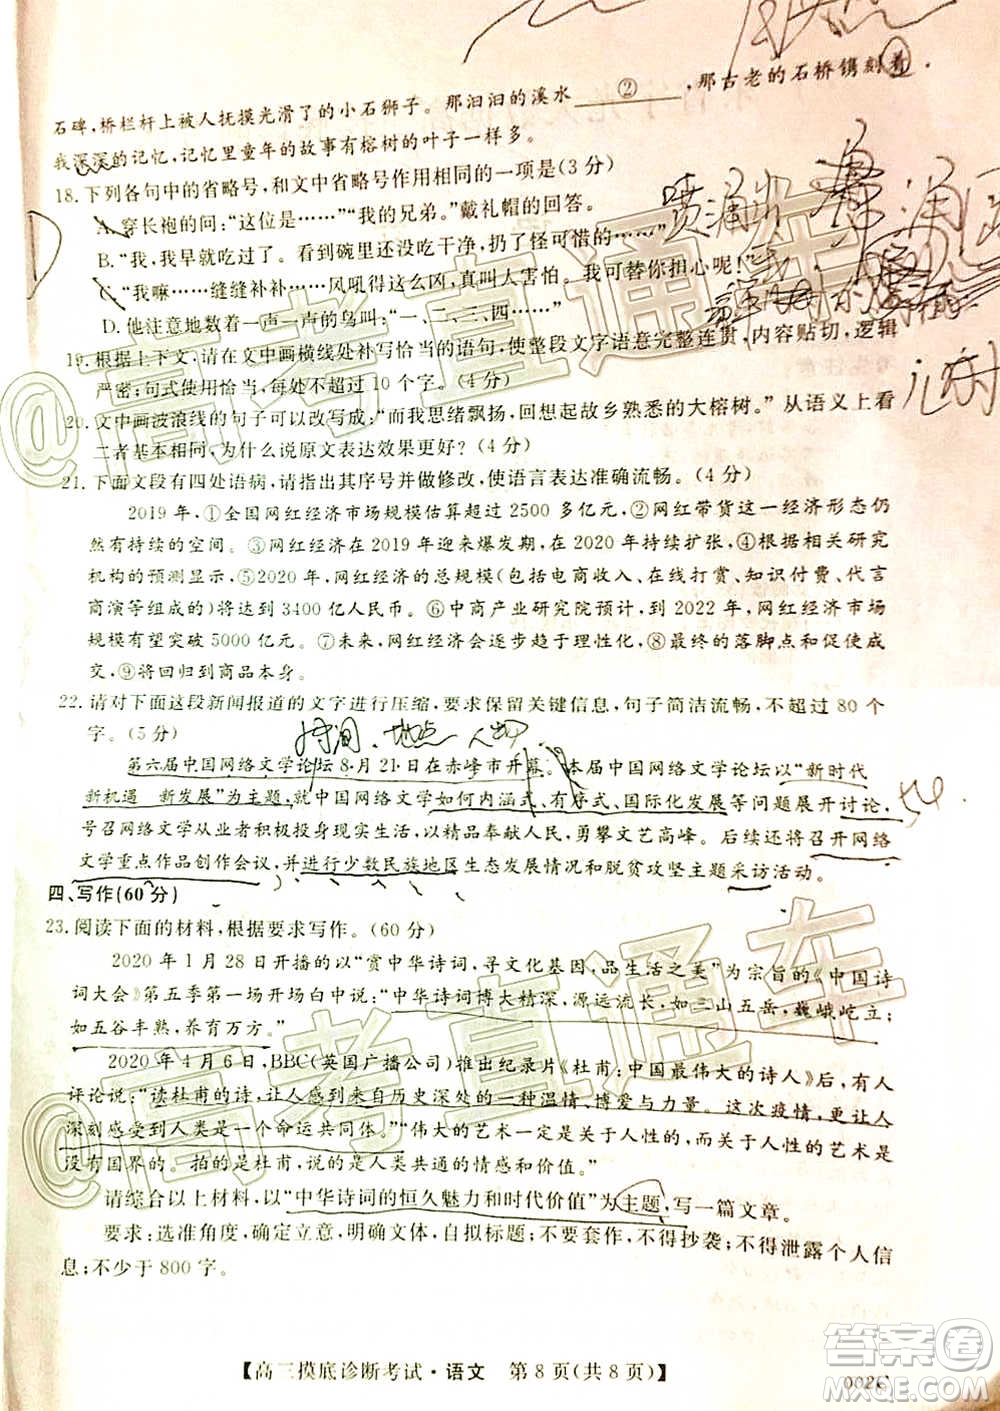 石碑，桥栏杆上被人抚摸光滑了的小石狮子。那汩汩的溪水 ② ，那古老的石桥镌刻着
我深深的记忆，记忆里童年的故事有榕树的叶子一样多。
18.下列各句中的省略号，和文中省略号作用相同的一项是(3分)
A.穿长袍的问：“这位是……”“我的兄弟。”戴礼帽的回答。
B.“我，我没有过日子……。看到碗里还没吃干净，扔了怪可惜的……”
C.“我嘛……缝缝补补……风吼得这么凶，真叫人害怕。我可替你担心呢！”
D.他注意地数着一声一声的鸟叫：“一、二、三、四……”
19.根据上下文，请在文中画横线处补写恰当的语句，使整段文字语意完整连贯，内容贴切，逻辑
严密；句式使用恰当，每处不超过10个字。(4分)
20.文中画波浪线的句子可以改写成：“而我思绪飘扬，回想起故乡熟悉的大榕树。”从语义上看
二者基本相同，为什么说原文表达效果更好？(4分)
21.下面文段有四处语病，请指出其序号并做修改，使语言表达准确流畅。(4分)
2019年，①全国网红经济市场规模估算超过2500多亿元，②网红带货这一经济形态仍
然有持续的空间。③网红经济在2019年迎来爆发期，在2020年持续扩张，④根据相关研究
机构的预测显示，⑤2020年，网红经济的总规模(包括电商收入、在线打赏、知识付费、代言
商演等组成的)将达到3400亿人民币。⑥中商产业研究院预计，到2022年，网红经济市场
规模有望突破5000亿元。⑦未来，网红经济会逐步趋于理性化，⑧最终的落脚点和促使成
交，⑨将回归到商品本身。
22.请对下面这段新闻报道的文字进行压缩，要求保留关键信息，句子简洁流畅，不超过80个
字。(5分)
时间、地点 人物
第六届中国网络文学论坛8月21日在赤峰市开幕。本届中国网络文学论坛以“新时代
新机遇 新发展”为主题，就中国网络文学如何内涵式、有序式、国际化发展等问题展开讨论，
号召网络文学从业者积极投身现实生活，以精品奉献人民，勇攀文艺高峰。后续还将召开网络
文学重点作品创作会议，并进行少数民族地区生态发展情况和脱贫攻坚主题采访活动。
四、写作(60分)
23.阅读下面的材料，根据要求写作。(60分)
2020年1月28日开播的以“赏中华诗词，寻文化基因，品生活之美”为宗旨的《中国诗
词大会》第五季第一场开场白中说：“中华诗词博大精深，源远流长，如三山五岳，巍峨屹立；
如五谷丰熟，养育万方。”
2020年4月6日，BBC(英国广播公司)推出纪录片《杜甫：中国最伟大的诗人》后，有人
评论说：“读杜甫的诗，让我感受到来自历史深处的一种温情、博爱与力量。这次疫情，更让人
深刻感受到人类是一个命运共同体。”“伟大的艺术一定是关于人性的，而关于人性的艺术是
没有国界的。拍的是杜甫，说的是人类共通的情感和价值。”
请综合以上材料，以“中华诗词的恒久魅力和时代价值”为主题，写一篇文章。
要求：选准角度，确定立意，明确文体，自拟标题；不要套作，不得抄袭；不得泄露个人信
息；不少于800字。
【高三摸底诊断考试·语文 第8页(共8页)】
002C
@高考直通车
@高考直通车